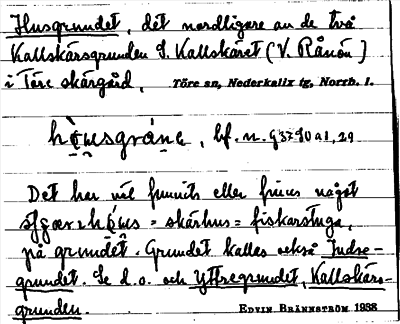 Husgrundet, det nordligare av de två
Kallskärsgrunden S. Kallskäret (V. Rånön)
i Töre skärgård, Töre sn, Nederkalix tg, Norrb. l.
bf. n.
Det har väl funnits eller finns något
= skärhus = fiskarstuga,
på grundet. Grundet kallas också Indre-
grundet. Se d. o. och Yttregrundet, Kallskärs-
grunden. EDVIN BRÄNNSTRÖM 1938